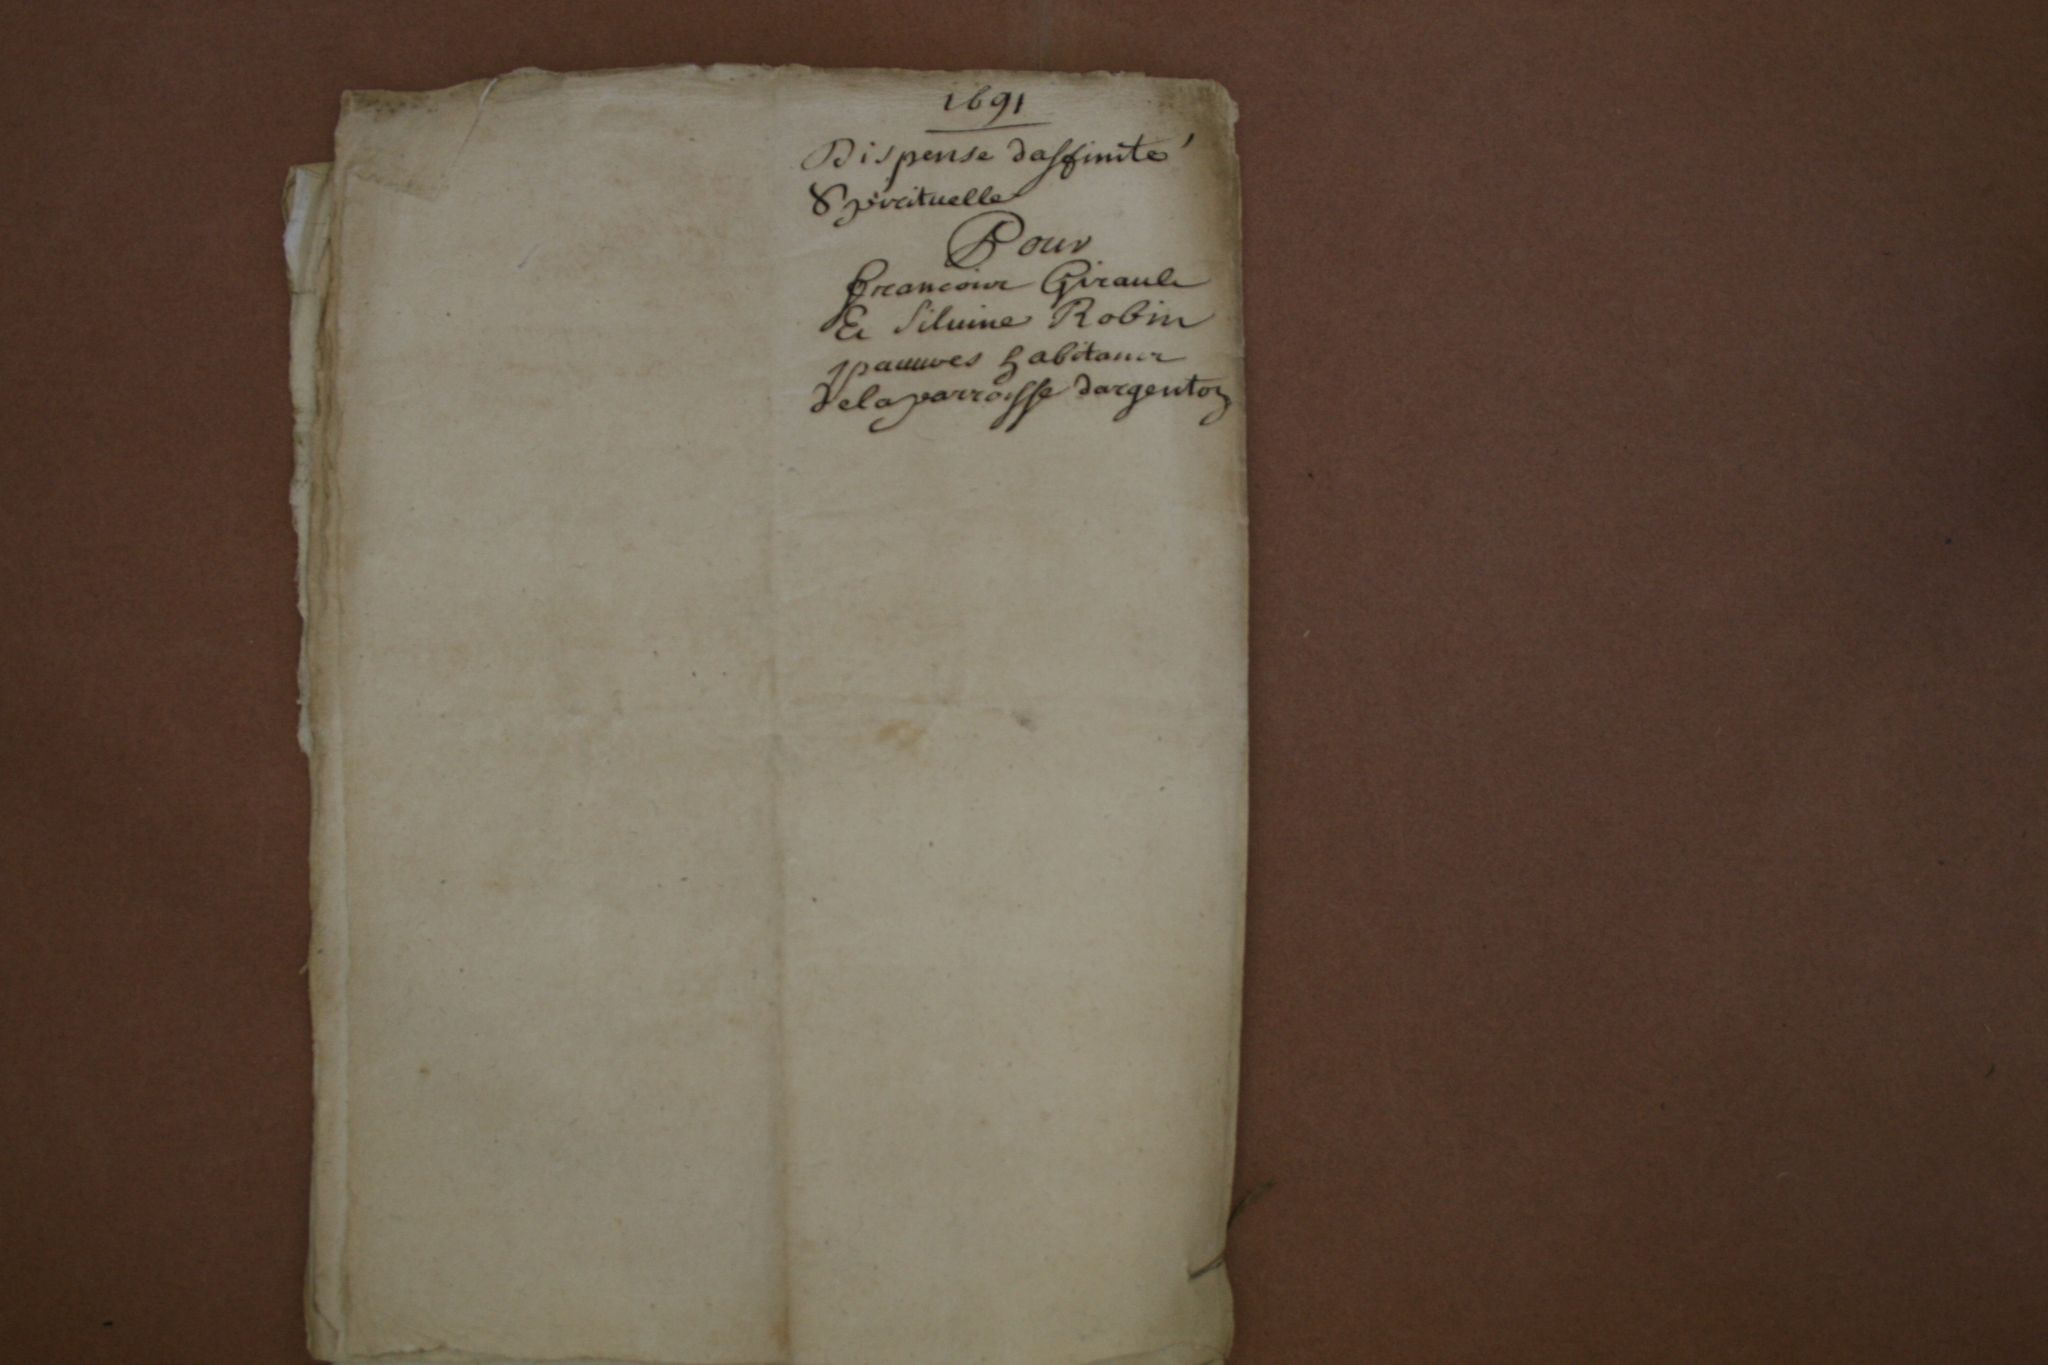 1691
Dispense daffinité
Spirituelle
Pour
francois Girault
Et Silvine Robin
pauures habitans
de la parroisse dargenton